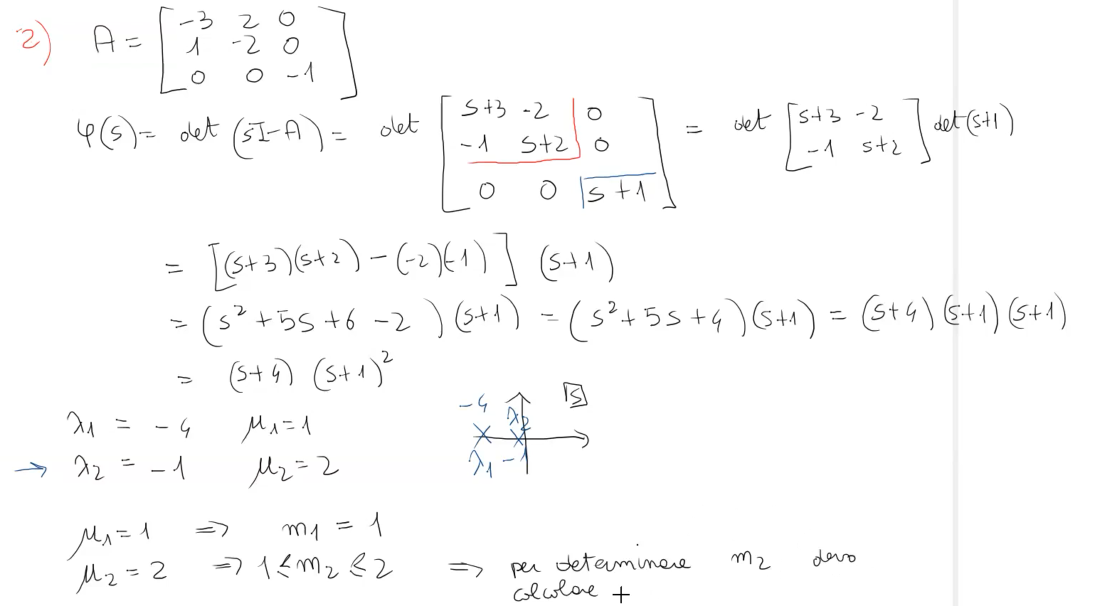 2) A = [ -3 2 0
1 -2 0
0 0 -1 ]
φ(s) = det (sI-A) = det [ s+3 -2 0
-1 s+2 0
0 0 s+1 ] = det [ s+3 -2
-1 s+2 ] det(s+1)
= [(s+3)(s+2) - (-2)(-1)] (s+1)
= (s² + 5s + 6 - 2) (s+1) = (s² + 5s + 4)(s+1) = (s+4)(s+1)(s+1)
= (s+4) (s+1)²
-4 λ2 S
λ1 = -4 μ1 = 1
λ1 -1
→ λ2 = -1 μ2 = 2
μ1 = 1 ⇒ m1 = 1
μ2 = 2 ⇒ 1 ≤ m2 ≤ 2 ⇒ per determinare m2 devo
calcolare